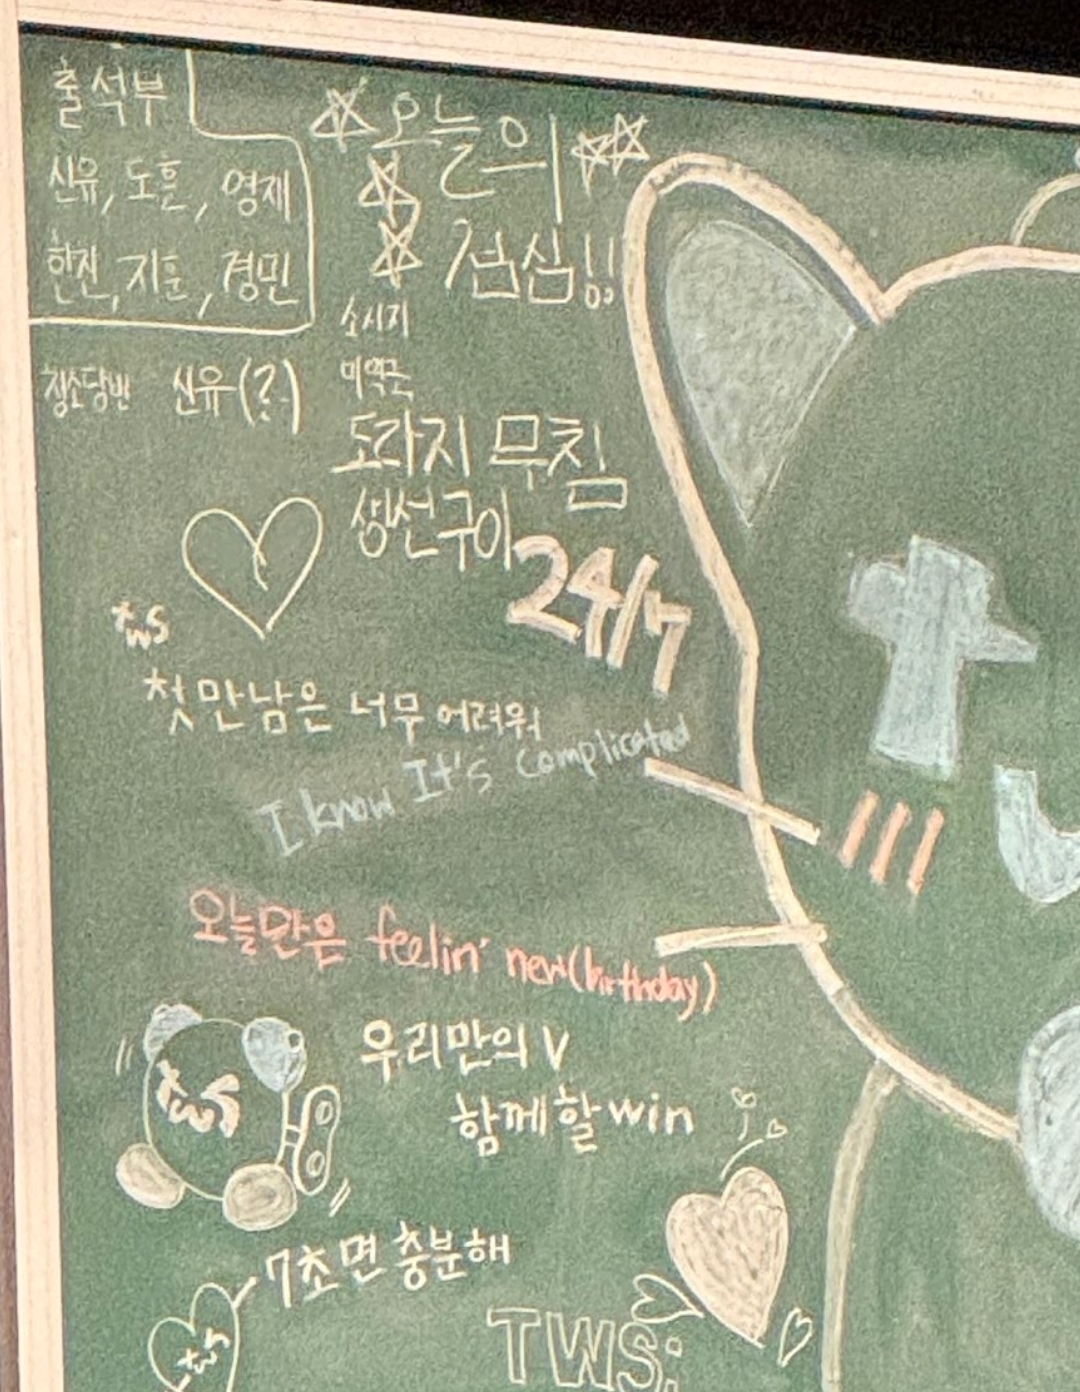 출석부
신유, 도훈, 영재
한진, 지훈, 경민
청소당번 신유(?)
오늘의
점심!!
소시지
미역국
도라지 무침
생선구이
24/7
tws
첫 만남은 너무 어려워
I know It's complicated
오늘만은 feelin' new(birthday)
우리만의 V
함께할 win
tws
7초면 충분해
tws
TWS: